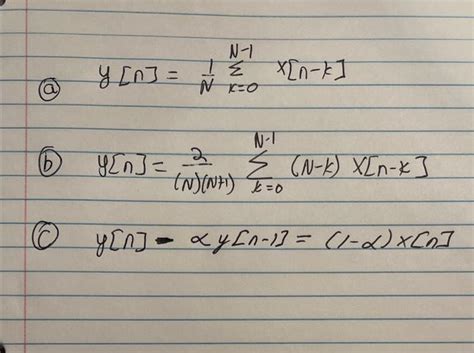 ⓐ y[n] = 1/N Σ_{k=0}^{N-1} x[n-k]
ⓑ y[n] = 2/(N)(N+1) Σ_{k=0}^{N-1} (N-k) x[n-k]
ⓒ y[n] - αy[n-1] = (1-α)x[n]